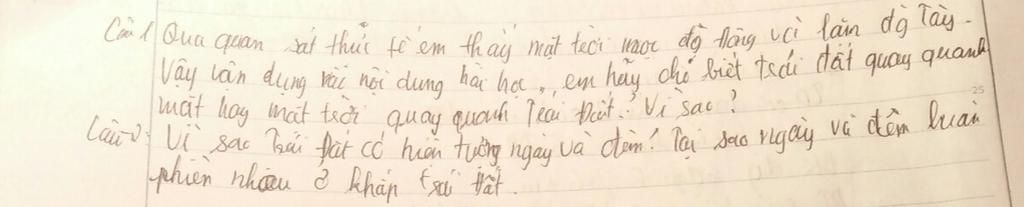 Câu 1 Qua quan sát thức tế em thấy mặt trời mọc độ đông và lặn độ Tây.
Vậy vận dụng vài nội dung bài học, em hãy cho biết trái đất quay quanh
mặt hay mặt trời quay quanh Trái Đất? Vì sao?
Câu 2: Vì sao Trái Đất có hiện tượng ngày và đêm? Tại sao ngày và đêm luân
phiên nhau ở khắp trái đất.